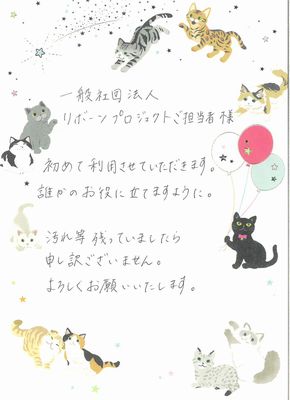 一般社団法人
リボーンプロジェクトご担当者様
初めて利用させていただきます。
誰かのお役に立てますように。
汚れ等残っていましたら
申し訳ございません。
よろしくお願いいたします。